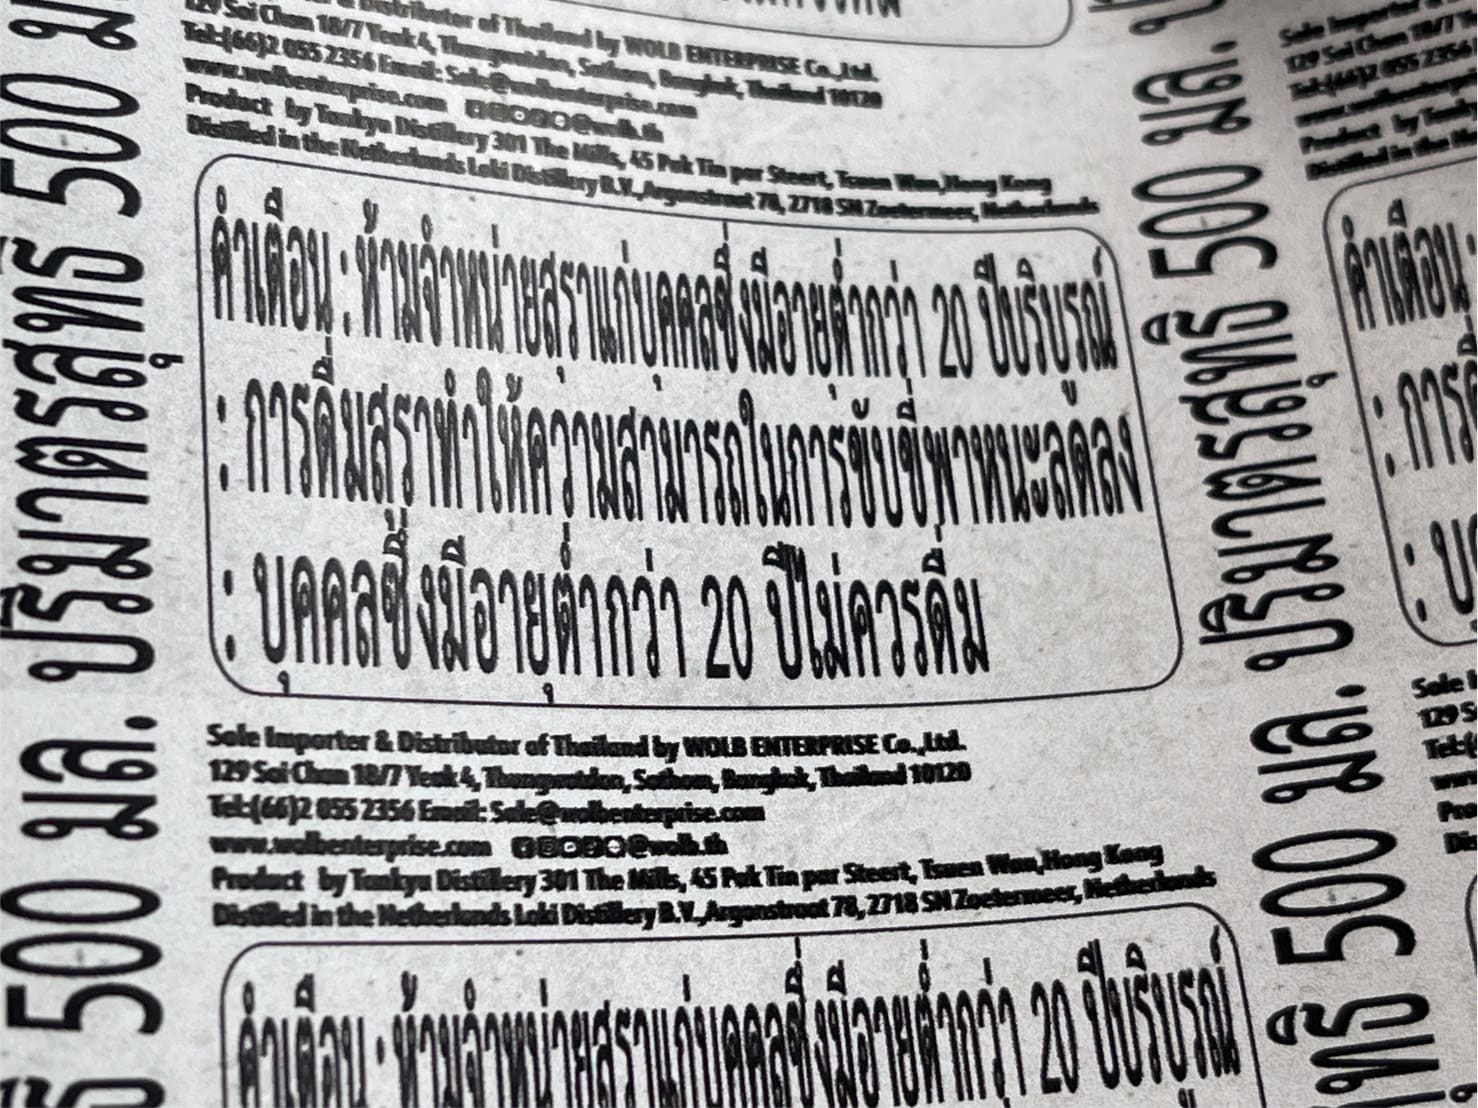 Distributor of Thailand by WOLB ENTERPRISE Co.,Ltd.
129 Soi Chan 18/7 Yeak 4, Thungwatdon, Sathorn, Bangkok, Thailand 10120
Tel:(66)2 055 2356 Email: Sale@wolbenterprise.com
www.wolbenterprise.com @wolb.th
Product by Tankyu Distillery 301 The Mills, 45 Pak Tin par Steert, Tsuen Wan,Hong Kong
Distilled in the Netherlands Loki Distillery B.V.,Argonstraat 78, 2718 SN Zoetermeer, Netherlands
คำเตือน : ห้ามจำหน่ายสุราแก่บุคคลซึ่งมีอายุต่ำกว่า 20 ปีบริบูรณ์
: การดื่มสุราทำให้ความสามารถในการขับขี่พาหนะลดลง
: บุคคลซึ่งมีอายุต่ำกว่า 20 ปีไม่ควรดื่ม
ปริมาตรสุทธิ 500 มล.
ปริมาตรสุทธิ 500 มล.
Sole Importer & Distributor of Thailand by WOLB ENTERPRISE Co.,Ltd.
129 Soi Chan 18/7 Yeak 4, Thungwatdon, Sathorn, Bangkok, Thailand 10120
Tel:(66)2 055 2356 Email: Sale@wolbenterprise.com
www.wolbenterprise.com @wolb.th
Product by Tankyu Distillery 301 The Mills, 45 Pak Tin par Steert, Tsuen Wan,Hong Kong
Distilled in the Netherlands Loki Distillery B.V.,Argonstraat 78, 2718 SN Zoetermeer, Netherlands
คำเตือน : ห้ามจำหน่ายสุราแก่บุคคลซึ่งมีอายุต่ำกว่า 20 ปีบริบูรณ์
500 มล.
500 มล.
Sole
129 Soi Chan 18/7
Tel:(66)2 055 2356
คำเตือน
: การ
Sole
129 S